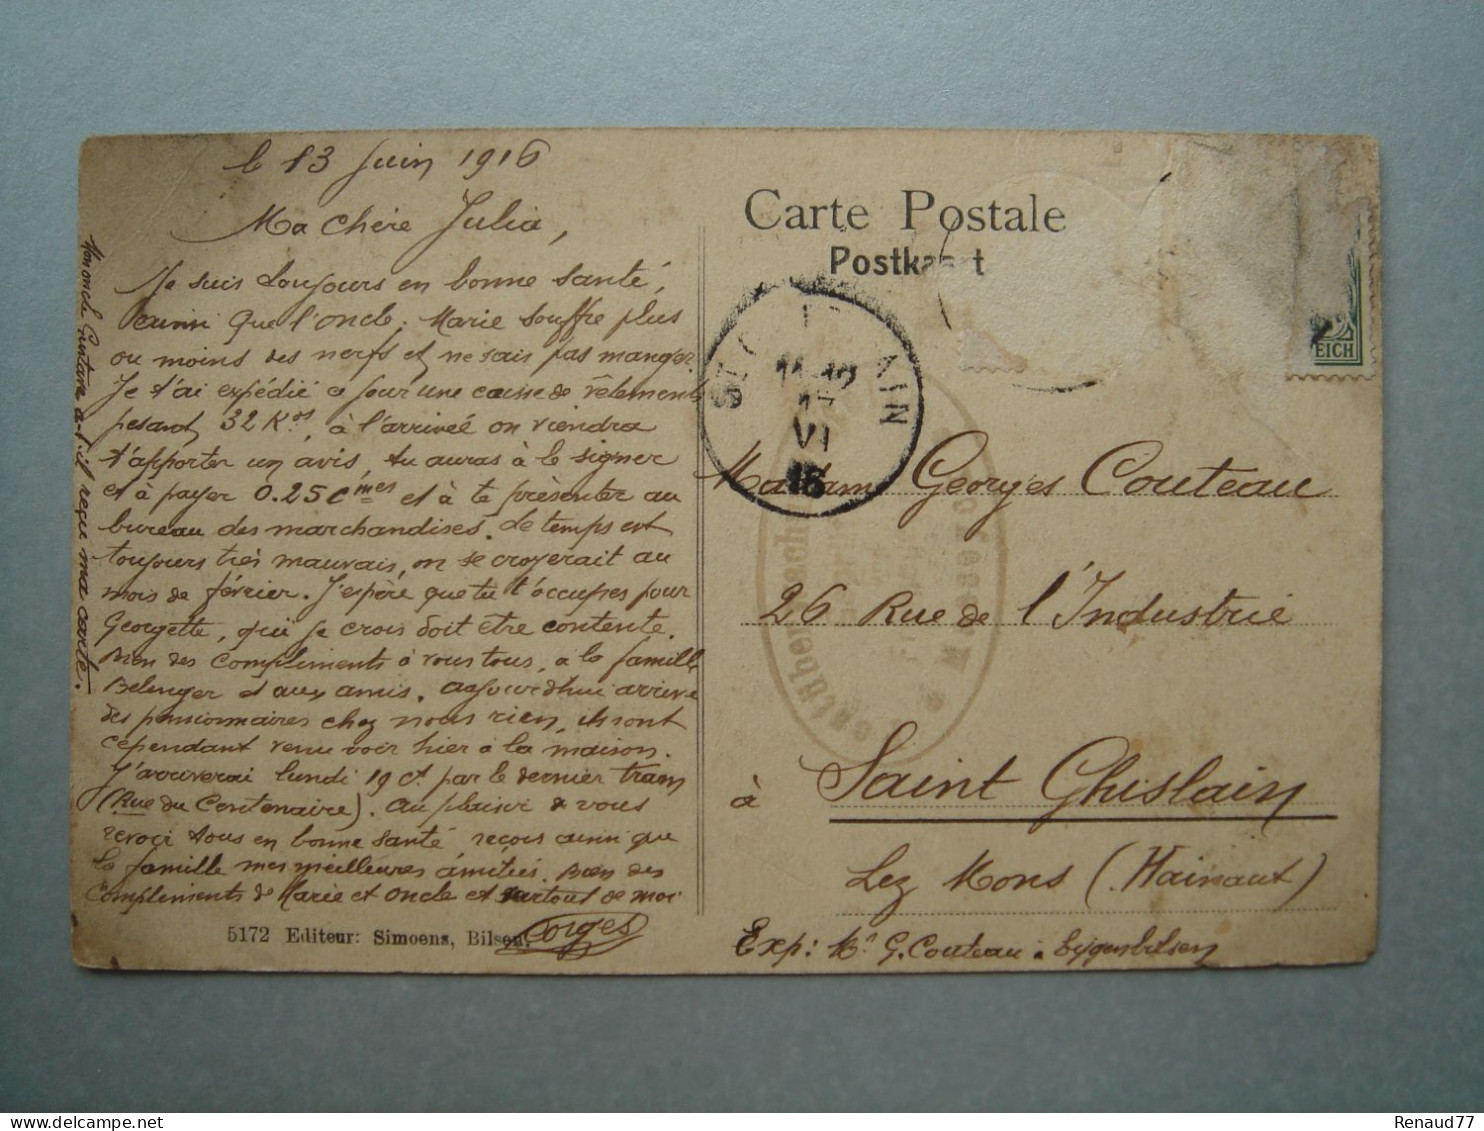 le 13 Juin 1916
Ma chère Julia,
Je suis toujours en bonne santé,
ainsi que l'oncle, Marie souffre plus
ou moins des nerfs et ne sais pas manger.
Je t'ai expédié ce jour une caisse de vêtements
pesant 32 Kos, à l'arrivée on viendra
t'apporter un avis, tu auras à le signer
et à payer 0.25 cmes et à te présenter au
bureau des marchandises. Le temps est
toujours très mauvais, on se croyerait au
mois de février. J'espère que tu t'occupes pour
Georgette, qui je crois doit être contente.
Bien des compliments à vous tous, à la famille
Belenger et aux amis. Aujourd'hui arrive
des pensionnaires chez nous rien, ils sont
cependant venu voir hier à la maison.
J'arriverai lundi 19 ct par le dernier tram
(Rue du Centenaire). Au plaisir de vous
revoir tous en bonne santé reçois ainsi que
la famille mes meilleures amitiés. Bien des
compliments de Marie et oncle et surtout de moi
Georges
Mon oncle a-t-il reçu ma carte.
5172 Editeur: Simoens, Bilsen.
Carte Postale
Postkaart
EICH
ST AIN
11-12
VI
16
Madame Georges Couteau
26 Rue de l'Industrie
à Saint Ghislain
Lez Mons (Hainaut)
Exp: Mr G. Couteau à Eygenbilsen
Renaud77